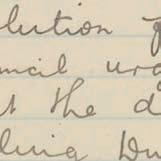 lution f
uncil urg
t the d
ling Du